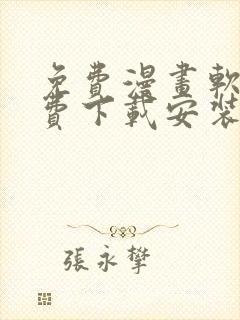 免費漫畫軟
費下載安裝
張永攀